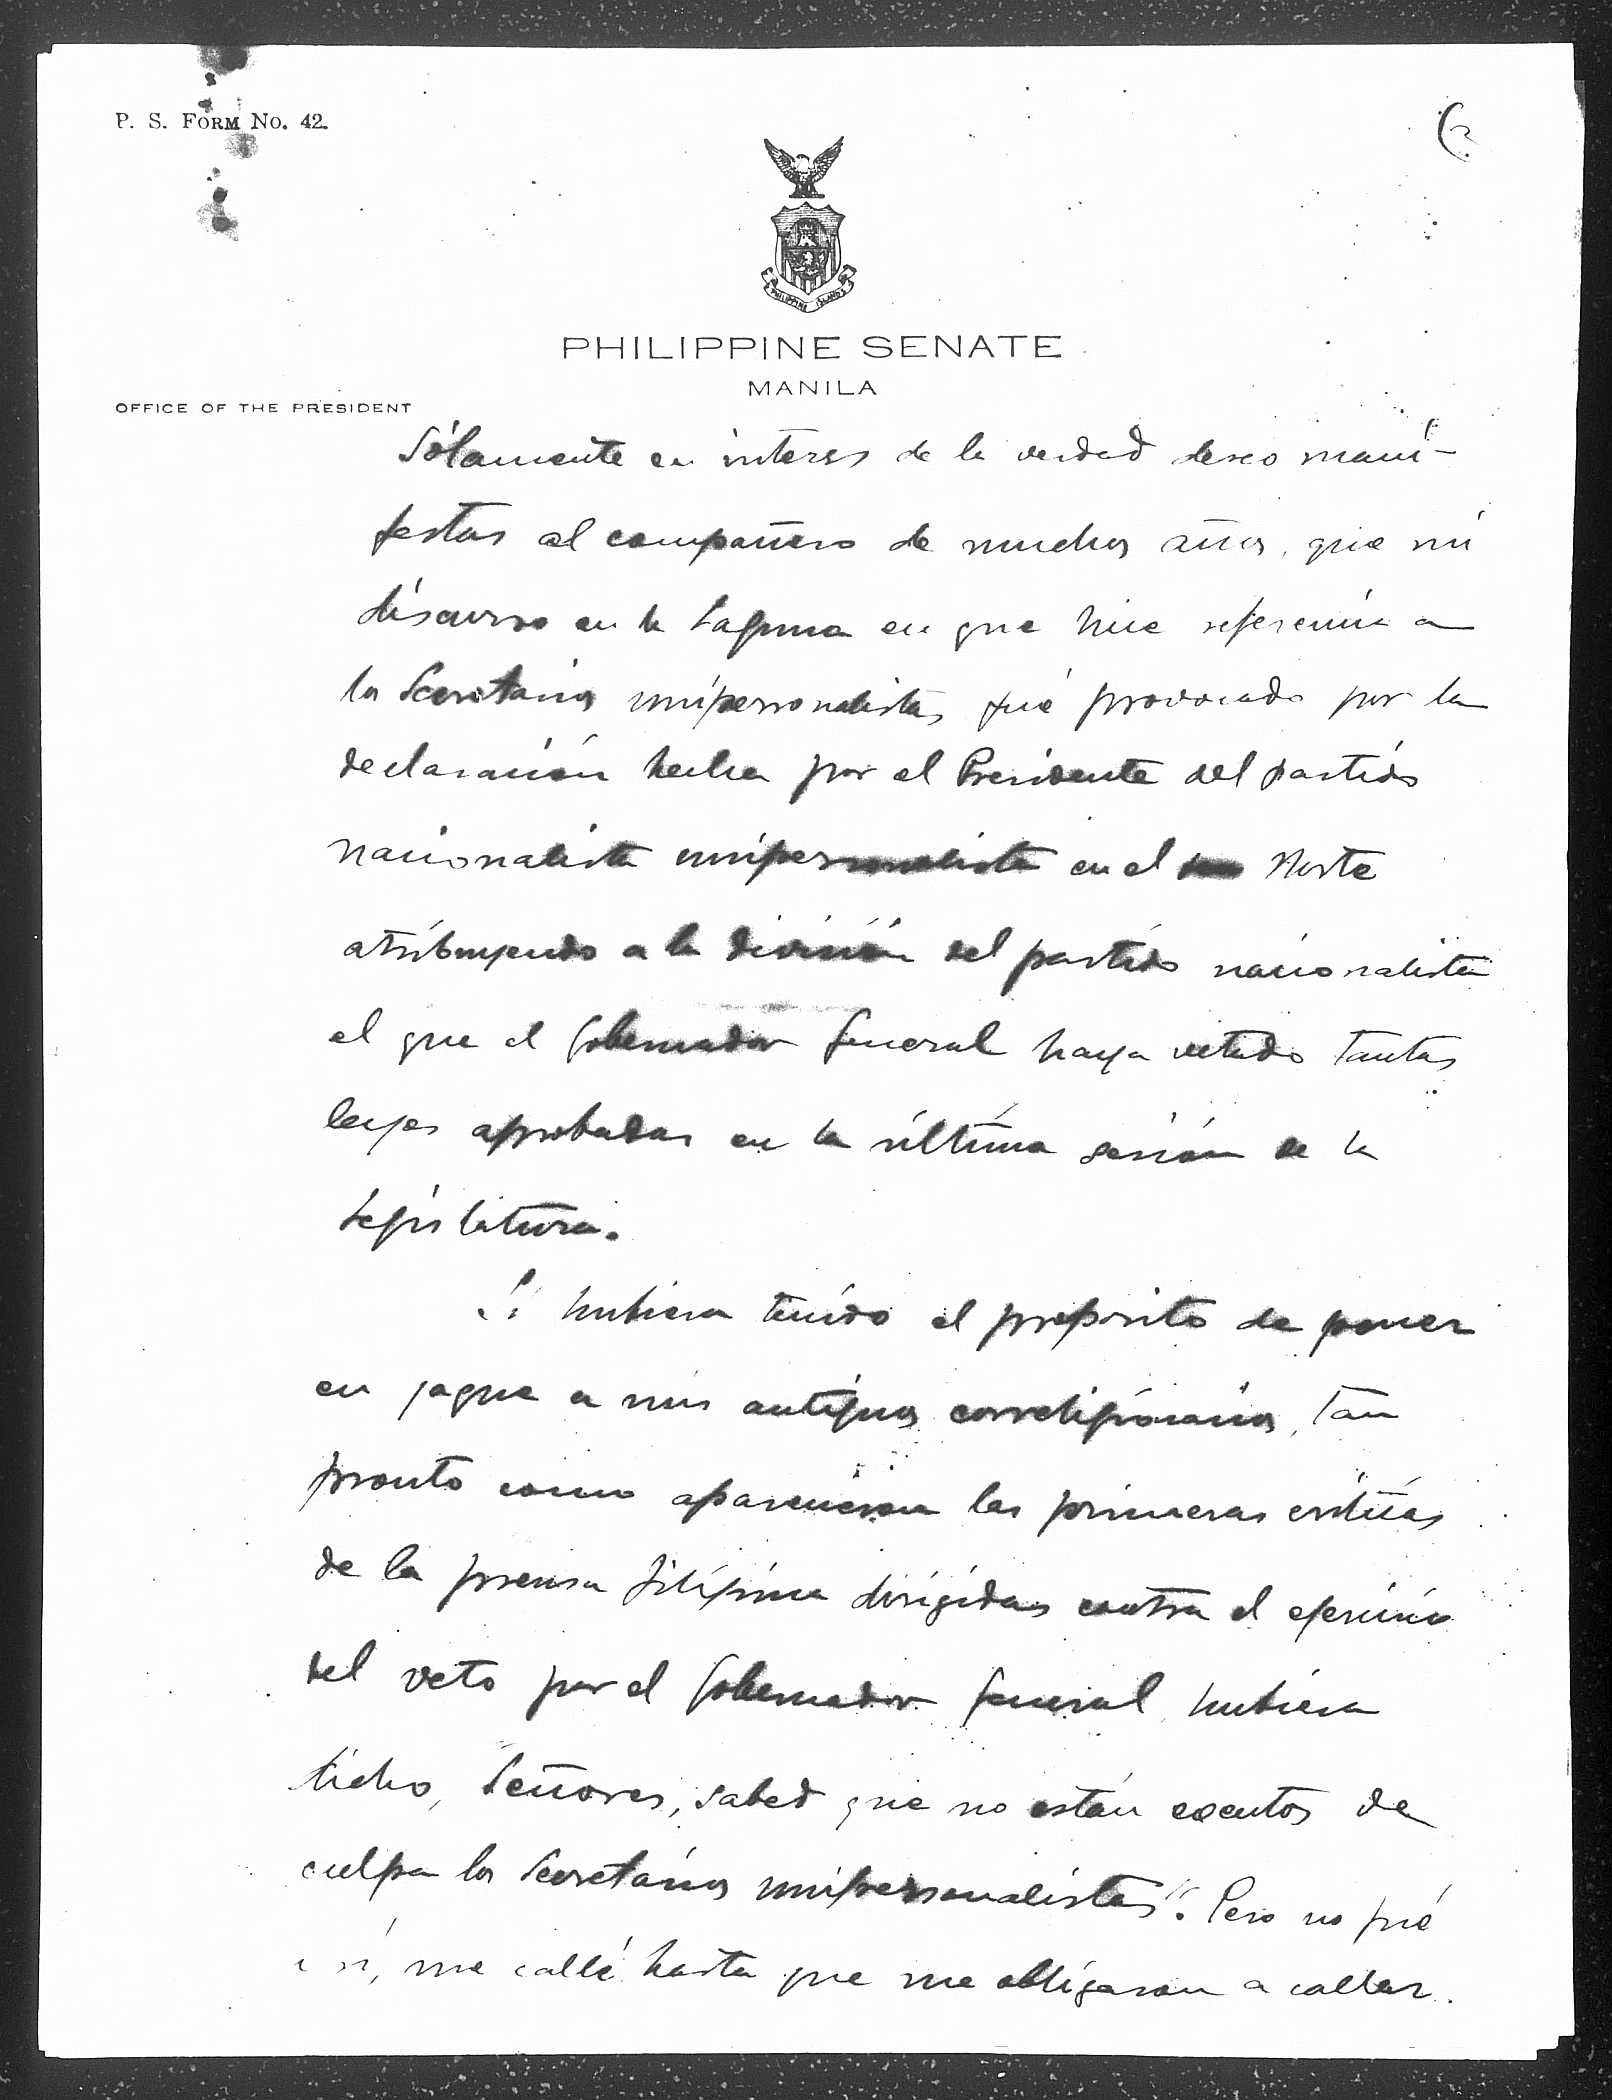 P. S. FORM No. 42.
(2
PHILIPPINE ISLANDS
PHILIPPINE SENATE
MANILA
OFFICE OF THE PRESIDENT
Sólamente en interés de la verdad deseo mani-
festar al compañero de muchos años, que mi
discurso en la Laguna en que hice referencia a
los Secretarios unipersonalistas fué provocado por la
declaración hecha por el Presidente del partido
nacionalista unipersonalista en el Norte
atribuyendo a la división del partido nacionalista
el que el Gobernador General haya vetado tantas
leyes aprobadas en la última sesión de la
Legislatura.
Si hubiera tenido el propósito de poner
en jaque a mis antiguos correligionarios, tan
pronto como aparecieron las primeras críticas
de la prensa filipina dirigidas contra el ejercicio
del veto por el Gobernador General hubiera
dicho, Señores, sabed que no están exentos de
culpa los Secretarios unipersonalistas". Pero no fué
así, me callé hasta que me obligaron a callar.